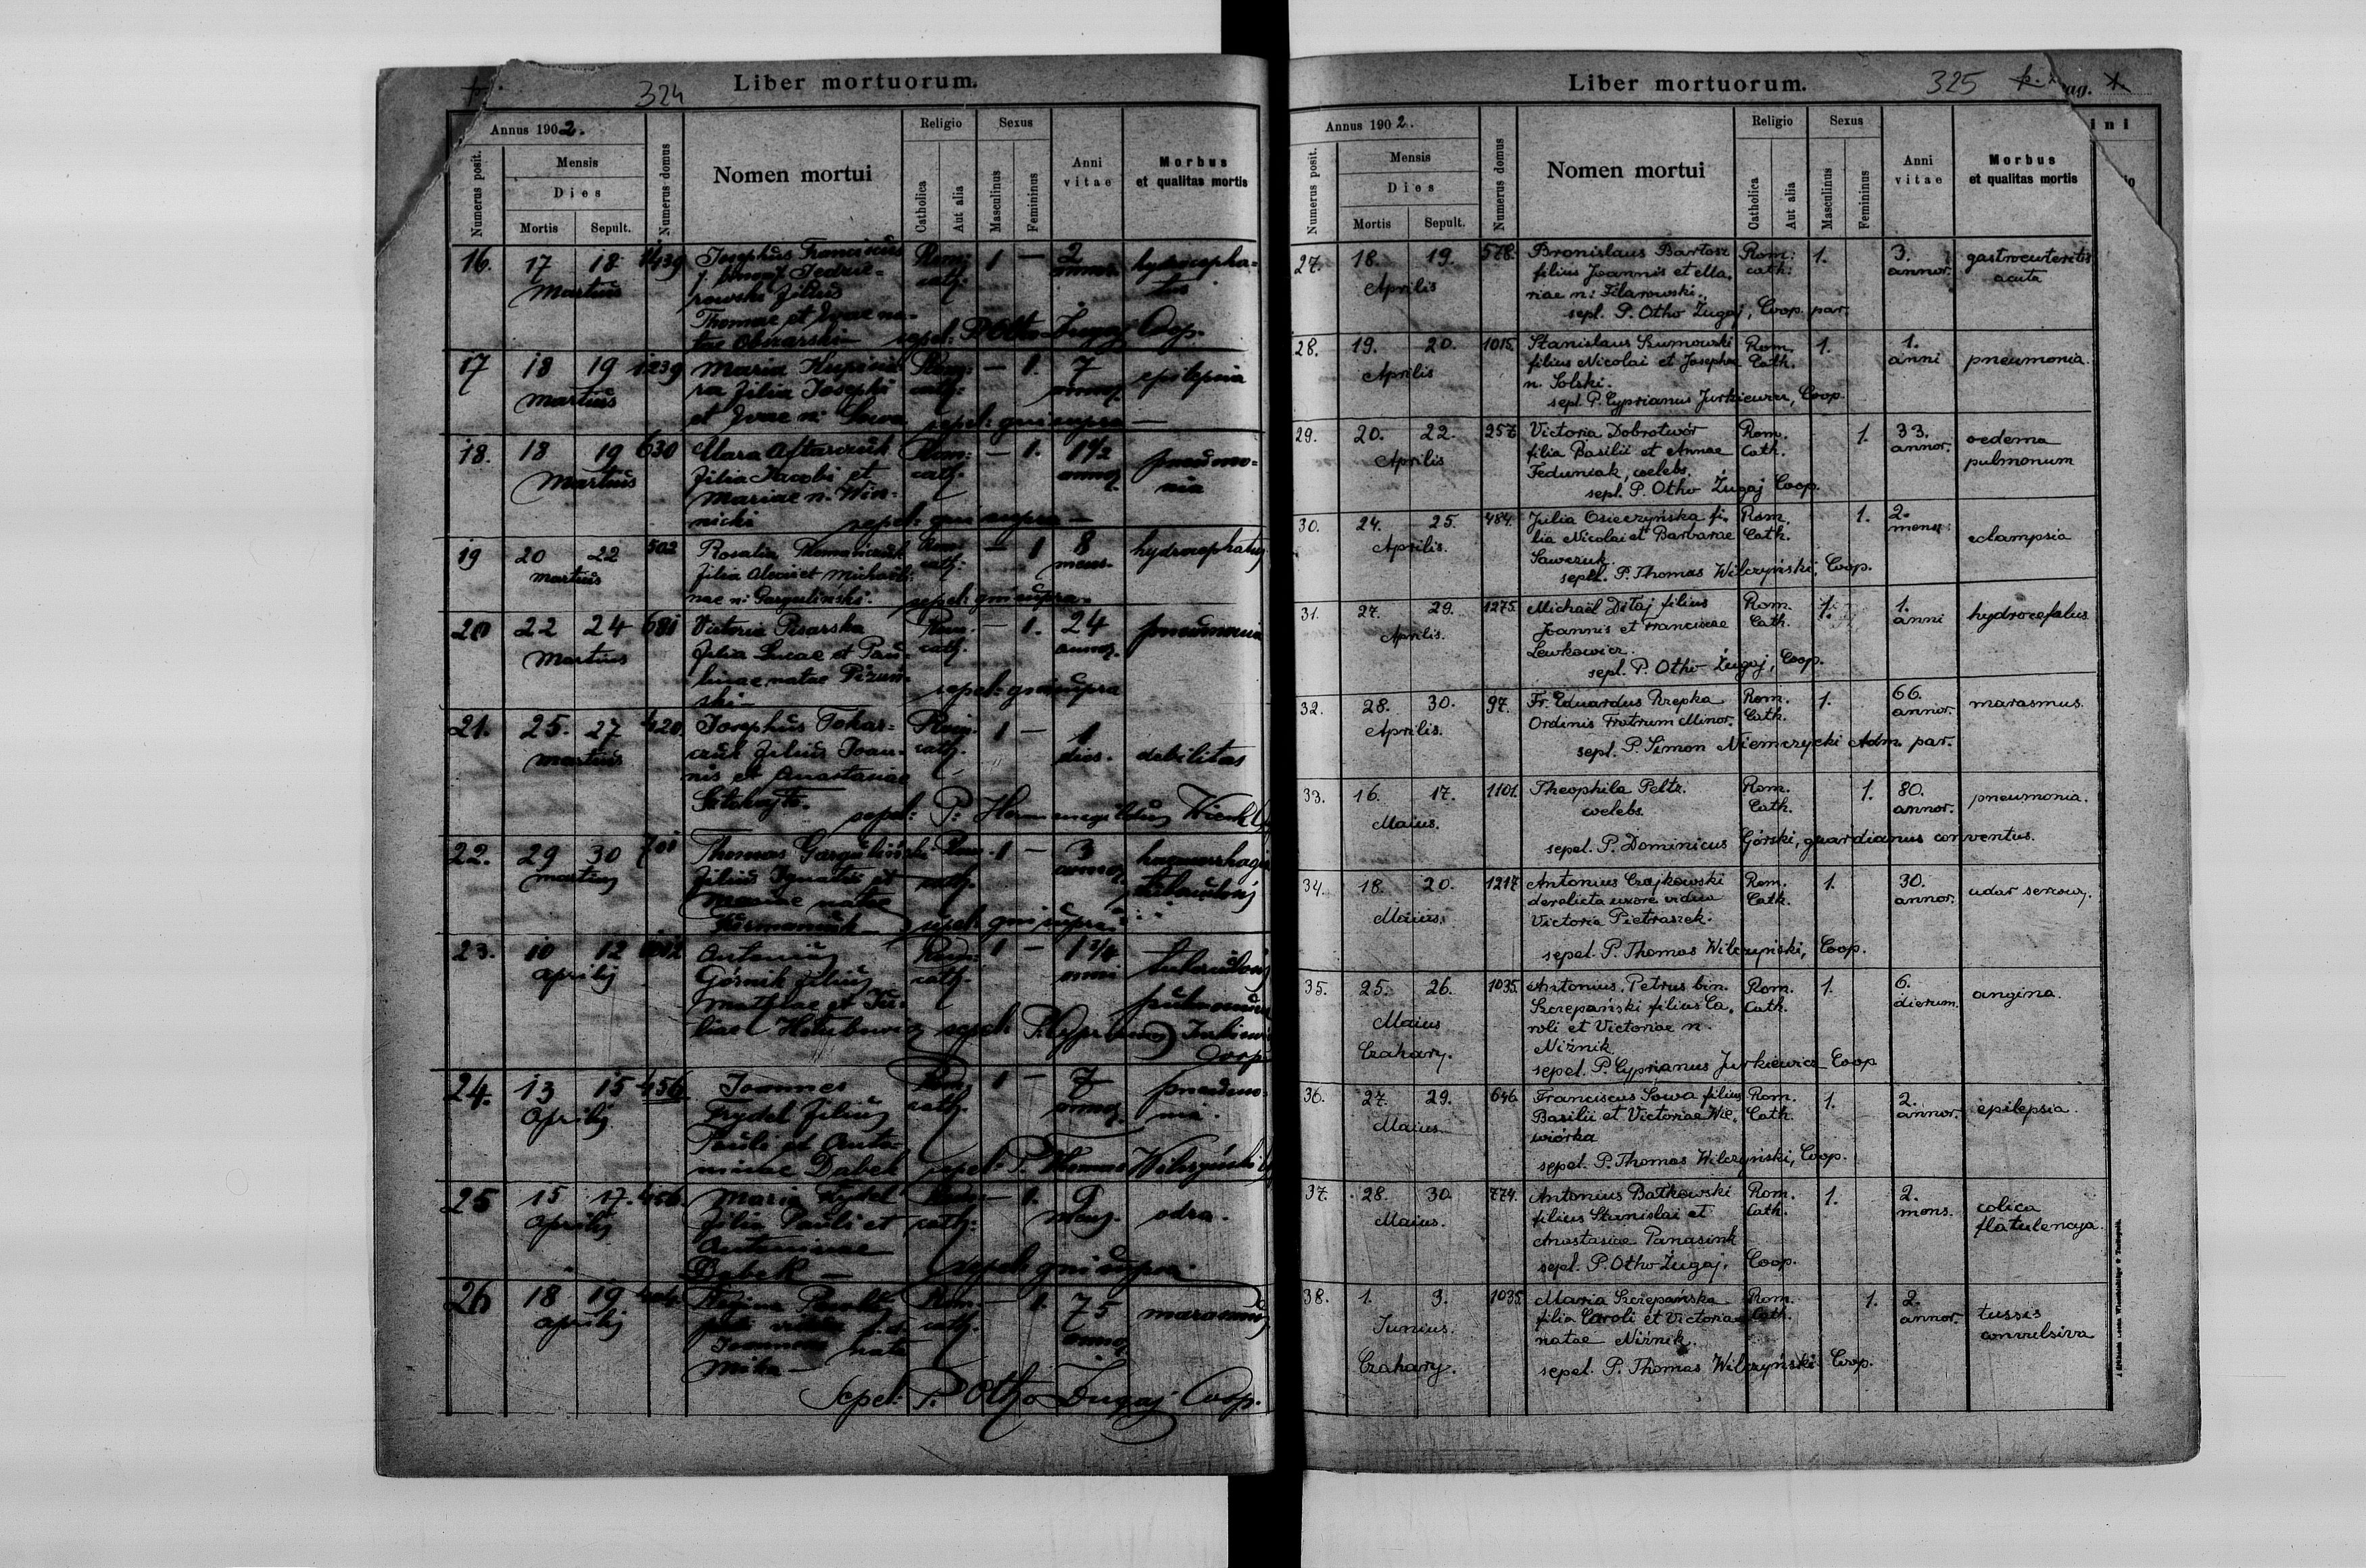 324
Liber mortuorum.
Annus 1902.
Numerus posit.
Mensis
Dies
Mortis
Sepult.
Numerus domus
Nomen mortui
Religio
Catholica
Aut alia
Sexus
Masculinus
Femininus
Anni vitae
Morbus
et qualitas mortis
16. 17 18 1439 Josephus Franciscus Rom: 1 — 2 hydrocepha=
Martius filius cath. annor. lus
Thomae et Evae na-
tae sepel: P. Otto Żugaj Coop.
17 18 19 1239 Maria Rom: — 1. 7 epilepsia
Martius ra filia Josephi cath: annor.
et Evae n: Sowa sepel: qui supra —
18. 18 19 630 Clara Rom: — 1. 1 1/2 pneumo=
Martius filia Jacobi et cath. annor. nia
Mariae n. Win-
nicki sepel: qui supra —
19 20 22 502 Rosalia Romańczuk Rom: — 1 8 hydrocephalus
martius filia et Michaeli- cath: mens.
nae n: Gargulinski. sepel: qui supra.
20 22 24 681 Victoria Pisarska Rom. — 1. 24 pneumonia
Martius filia Lucae et Pau- cath. annor.
linae natae
ski — sepel: qui supra
21. 25. 27 420 Josephus Tokar- Rom. 1 — 1 debilitas
martius czuk filius Joan- cath. dies.
nis et Anastasiae
sepel: P:
22. 29 30 701 Thomas Gargulinski Rom. 1 — 3
martius filius Ignatii et cath. annor.
Mariae natae
sepel: qui supra
23. 10 12 Antonius Rom: 1 — 1 3/4
Aprilis Górnik filius cath. anni
Mathiae et Ju-
liae sepel: P. Cyprianus
Coop
24. 13 15 456 Joannes Rom. 1 — 7 pneumo-
Aprilis Frydel filius cath. annor. nia.
Pauli et Anto-
ninae Dąbek sepel: P. Thomas Wilczyński
25 15 17. 456. Maria Frydel Rom. — 1. 9 odra.
Aprilis filia Pauli et cath: mens.
Antoninae
Dąbek — sepel: qui supra.
26 18 19 Rom. — 1. 75 marasmus
Aprilis cath. annor.
nata
Mika —
Sepel: P. Otto Żugaj Coop.
Liber mortuorum.
325
pag.
Annus 1902.
Numerus posit.
Mensis
Dies
Mortis
Sepult.
Numerus domus
Nomen mortui
Religio
Catholica
Aut alia
Sexus
Masculinus
Femininus
Anni vitae
Morbus
et qualitas mortis
27. 18. 19. 578. Bronislaus Bartosz Rom: 1. 3. gastroenteritis
Aprilis filius Joannis et Ma- cath: annor. acuta
riae n: Filarowski.
sepl. P. Otho Żugaj, Coop. par.
28. 19. 20. 1015. Stanislaus Szumowski Rom. 1. 1. pneumonia.
Aprilis filius Nicolai et Josephae Cath. anni
n. Solski.
sepl. P. Cyprianus Jurkiewicz, Coop.
29. 20. 22. 257 Victoria Dobrotwór Rom. 1. 33. oedema
Aprilis filia Basilii et Annae Cath. annor. pulmonum
Feduniak, coelebs.
sepl. P. Otho Żugaj Coop.
30. 24. 25. 484. Julia Osieczyńska fi- Rom. 1. 2. eclampsia
Aprilis. lia Nicolai et Barbarae Cath. mens:
Sawczuk
sepl. P. Thomas Wilczyński, Coop.
31. 27. 29. 1275. Michaël Ditaj filius Rom. 1. 1. hydrocefalus
Aprilis. Joannis et Franciscae Cath. anni
Lewkowicz.
sepl. P. Otho Żugaj, Coop.
32. 28. 30. 97. Fr. Eduardus Rzepka Rom. 1. 66. marasmus.
Aprilis. Ordinis Fratrum Minor. Cath. annor.
sepl. P. Simon Niemczycki Adm. par.
33. 16. 17. 1101. Theophila Peltz. Rom. 1. 80. pneumonia.
Maius. coelebs. Cath. annor.
sepel. P. Dominicus Górski, guardianus conventus.
34. 18. 20. 1217 Antonius Czajkowski Rom. 1. 30. udar sercowy.
Maius. derelicta uxore vidua Cath. annor.
Victoria Pietraszek.
sepel. P. Thomas Wilczyński, Coop.
35. 25. 26. 1035. Antonius, Petrus bin. Rom. 1. 6. angina.
Maius Szczepański filius Ca- Cath. dierum.
Czahary. roli et Victoriae n.
Niżnik
sepel. P. Cyprianus Jurkiewicz Coop
36. 27. 29. 646. Franciscus Sowa filius Rom. 1. 2. epilepsia.
Maius Basilii et Victoriae Wie- Cath. annor.
wiórka
sepel. P. Thomas Wilczyński, Coop.
37. 28. 30. 774. Antonius Batkowski Rom. 1. 2. colica
Maius. filius Stanislai et Cath. mons. flatulencya.
Anastasiae Panasiuk
sepel. P. Otho Żugaj, Coop.
38. 1. 3. 1035. Maria Szczepańska Rom. 1. 2. tussis
Junius. filia Caroli et Victoriae Cath. annor. convulsiva
Czahary. natae Niżnik.
sepel. P. Thomas Wilczyński Coop.